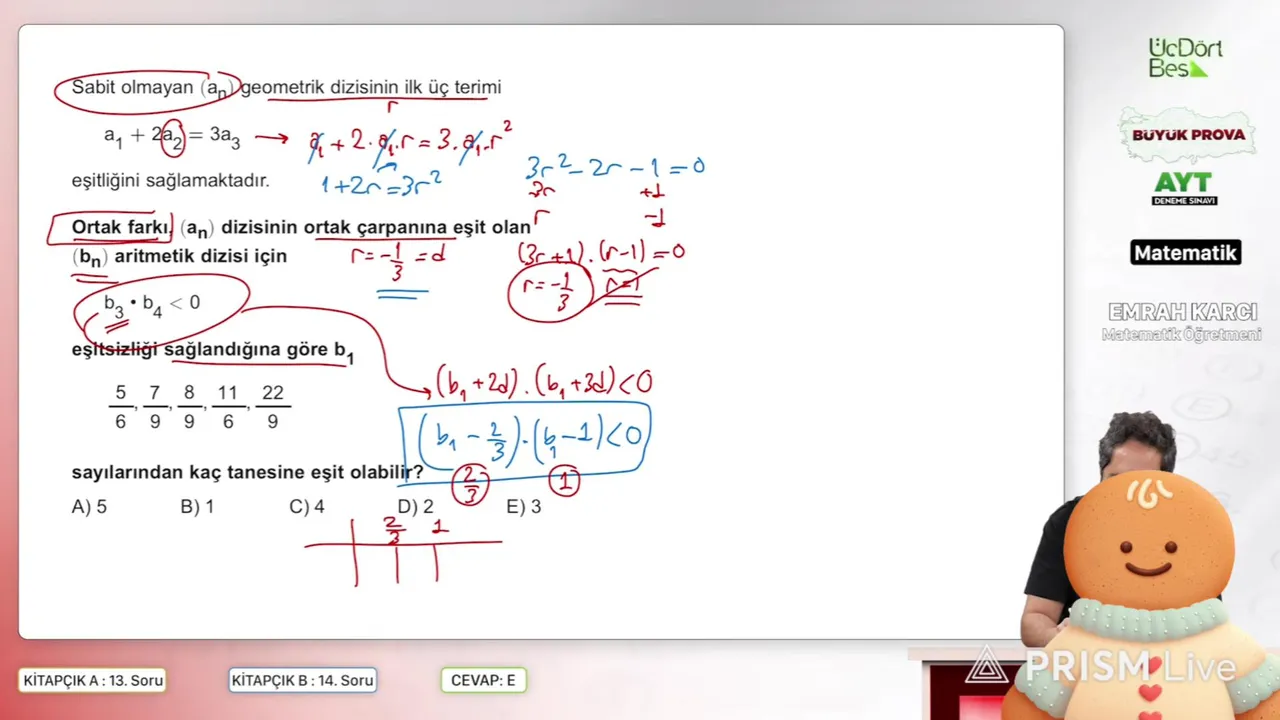 Sabit olmayan (aₙ) geometrik dizisinin ilk üç terimi
r
a₁ + 2a₂ = 3a₃ → a₁ + 2·a₁·r = 3·a₁·r²
eşitliğini sağlamaktadır.
1+2r=3r²
3r²-2r-1=0
3r +1
r -1
Ortak farkı, (aₙ) dizisinin ortak çarpanına eşit olan
(bₙ) aritmetik dizisi için
r=-1/3=d
(3r+1)·(r-1)=0
r=-1/3 r=1
b₃ • b₄ < 0
eşitsizliği sağlandığına göre b₁
(b₁+2d)·(b₁+3d)<0
5/6, 7/9, 8/9, 11/6, 22/9
(b₁-2/3)·(b₁-1)<0
sayılarından kaç tanesine eşit olabilir?
2/3 1
A) 5 B) 1 C) 4 D) 2 E) 3
2/3 1
ÜçDört
Beş
BÜYÜK PROVA
AYT
DENEME SINAVI
Matematik
EMRAH KARCI
Matematik Öğretmeni
PRISM Live
KİTAPÇIK A : 13. Soru
KİTAPÇIK B : 14. Soru
CEVAP: E